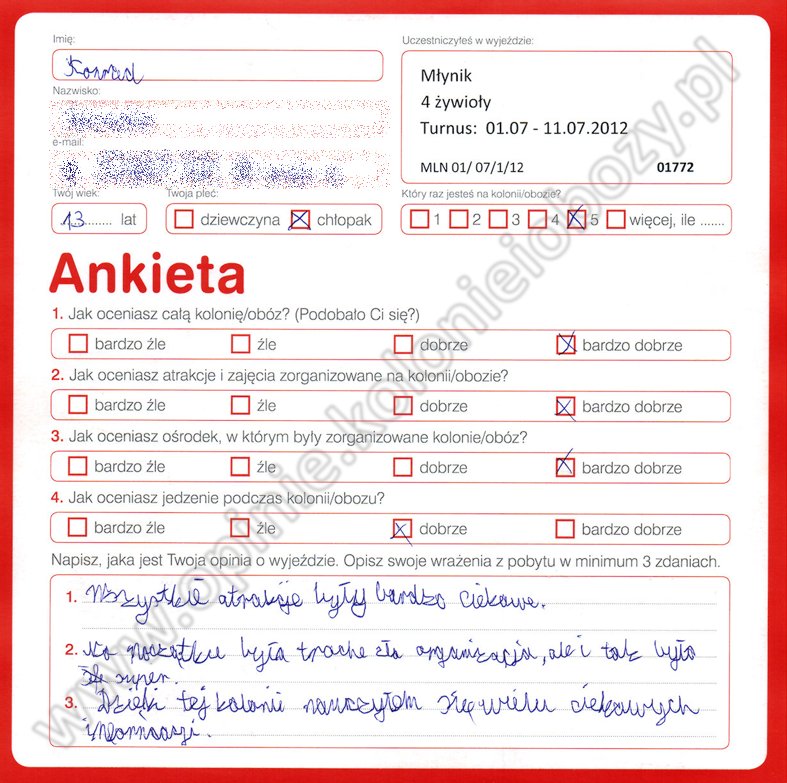 Imię:
Uczestniczyłeś w wyjeździe:
Konrad
Młynik
4 żywioły
Turnus: 01.07 - 11.07.2012
MLN 01/ 07/1/12 01772
Nazwisko:
e-mail:
Twój wiek:
Twoja płeć:
Który raz jesteś na kolonii/obozie?
13 lat
dziewczyna chłopak
1 2 3 4 5 więcej, ile .......
Ankieta
1. Jak oceniasz całą kolonię/obóz? (Podobało Ci się?)
bardzo źle źle dobrze bardzo dobrze
2. Jak oceniasz atrakcje i zajęcia zorganizowane na kolonii/obozie?
bardzo źle źle dobrze bardzo dobrze
3. Jak oceniasz ośrodek, w którym były zorganizowane kolonie/obóz?
bardzo źle źle dobrze bardzo dobrze
4. Jak oceniasz jedzenie podczas kolonii/obozu?
bardzo źle źle dobrze bardzo dobrze
Napisz, jaka jest Twoja opinia o wyjeździe. Opisz swoje wrażenia z pobytu w minimum 3 zdaniach.
1. Wszystkie atrakcje były bardzo ciekawe.
2. Na początku była troche zła organizacja, ale i tak było
super.
3. Dzięki tej kolonii nauczyłem się wielu ciekawych
informacji.
www.opinie.kolonieiobozy.pl